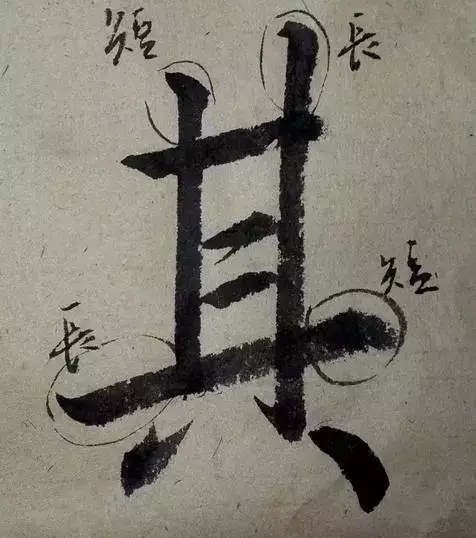 短 長
其
長 短